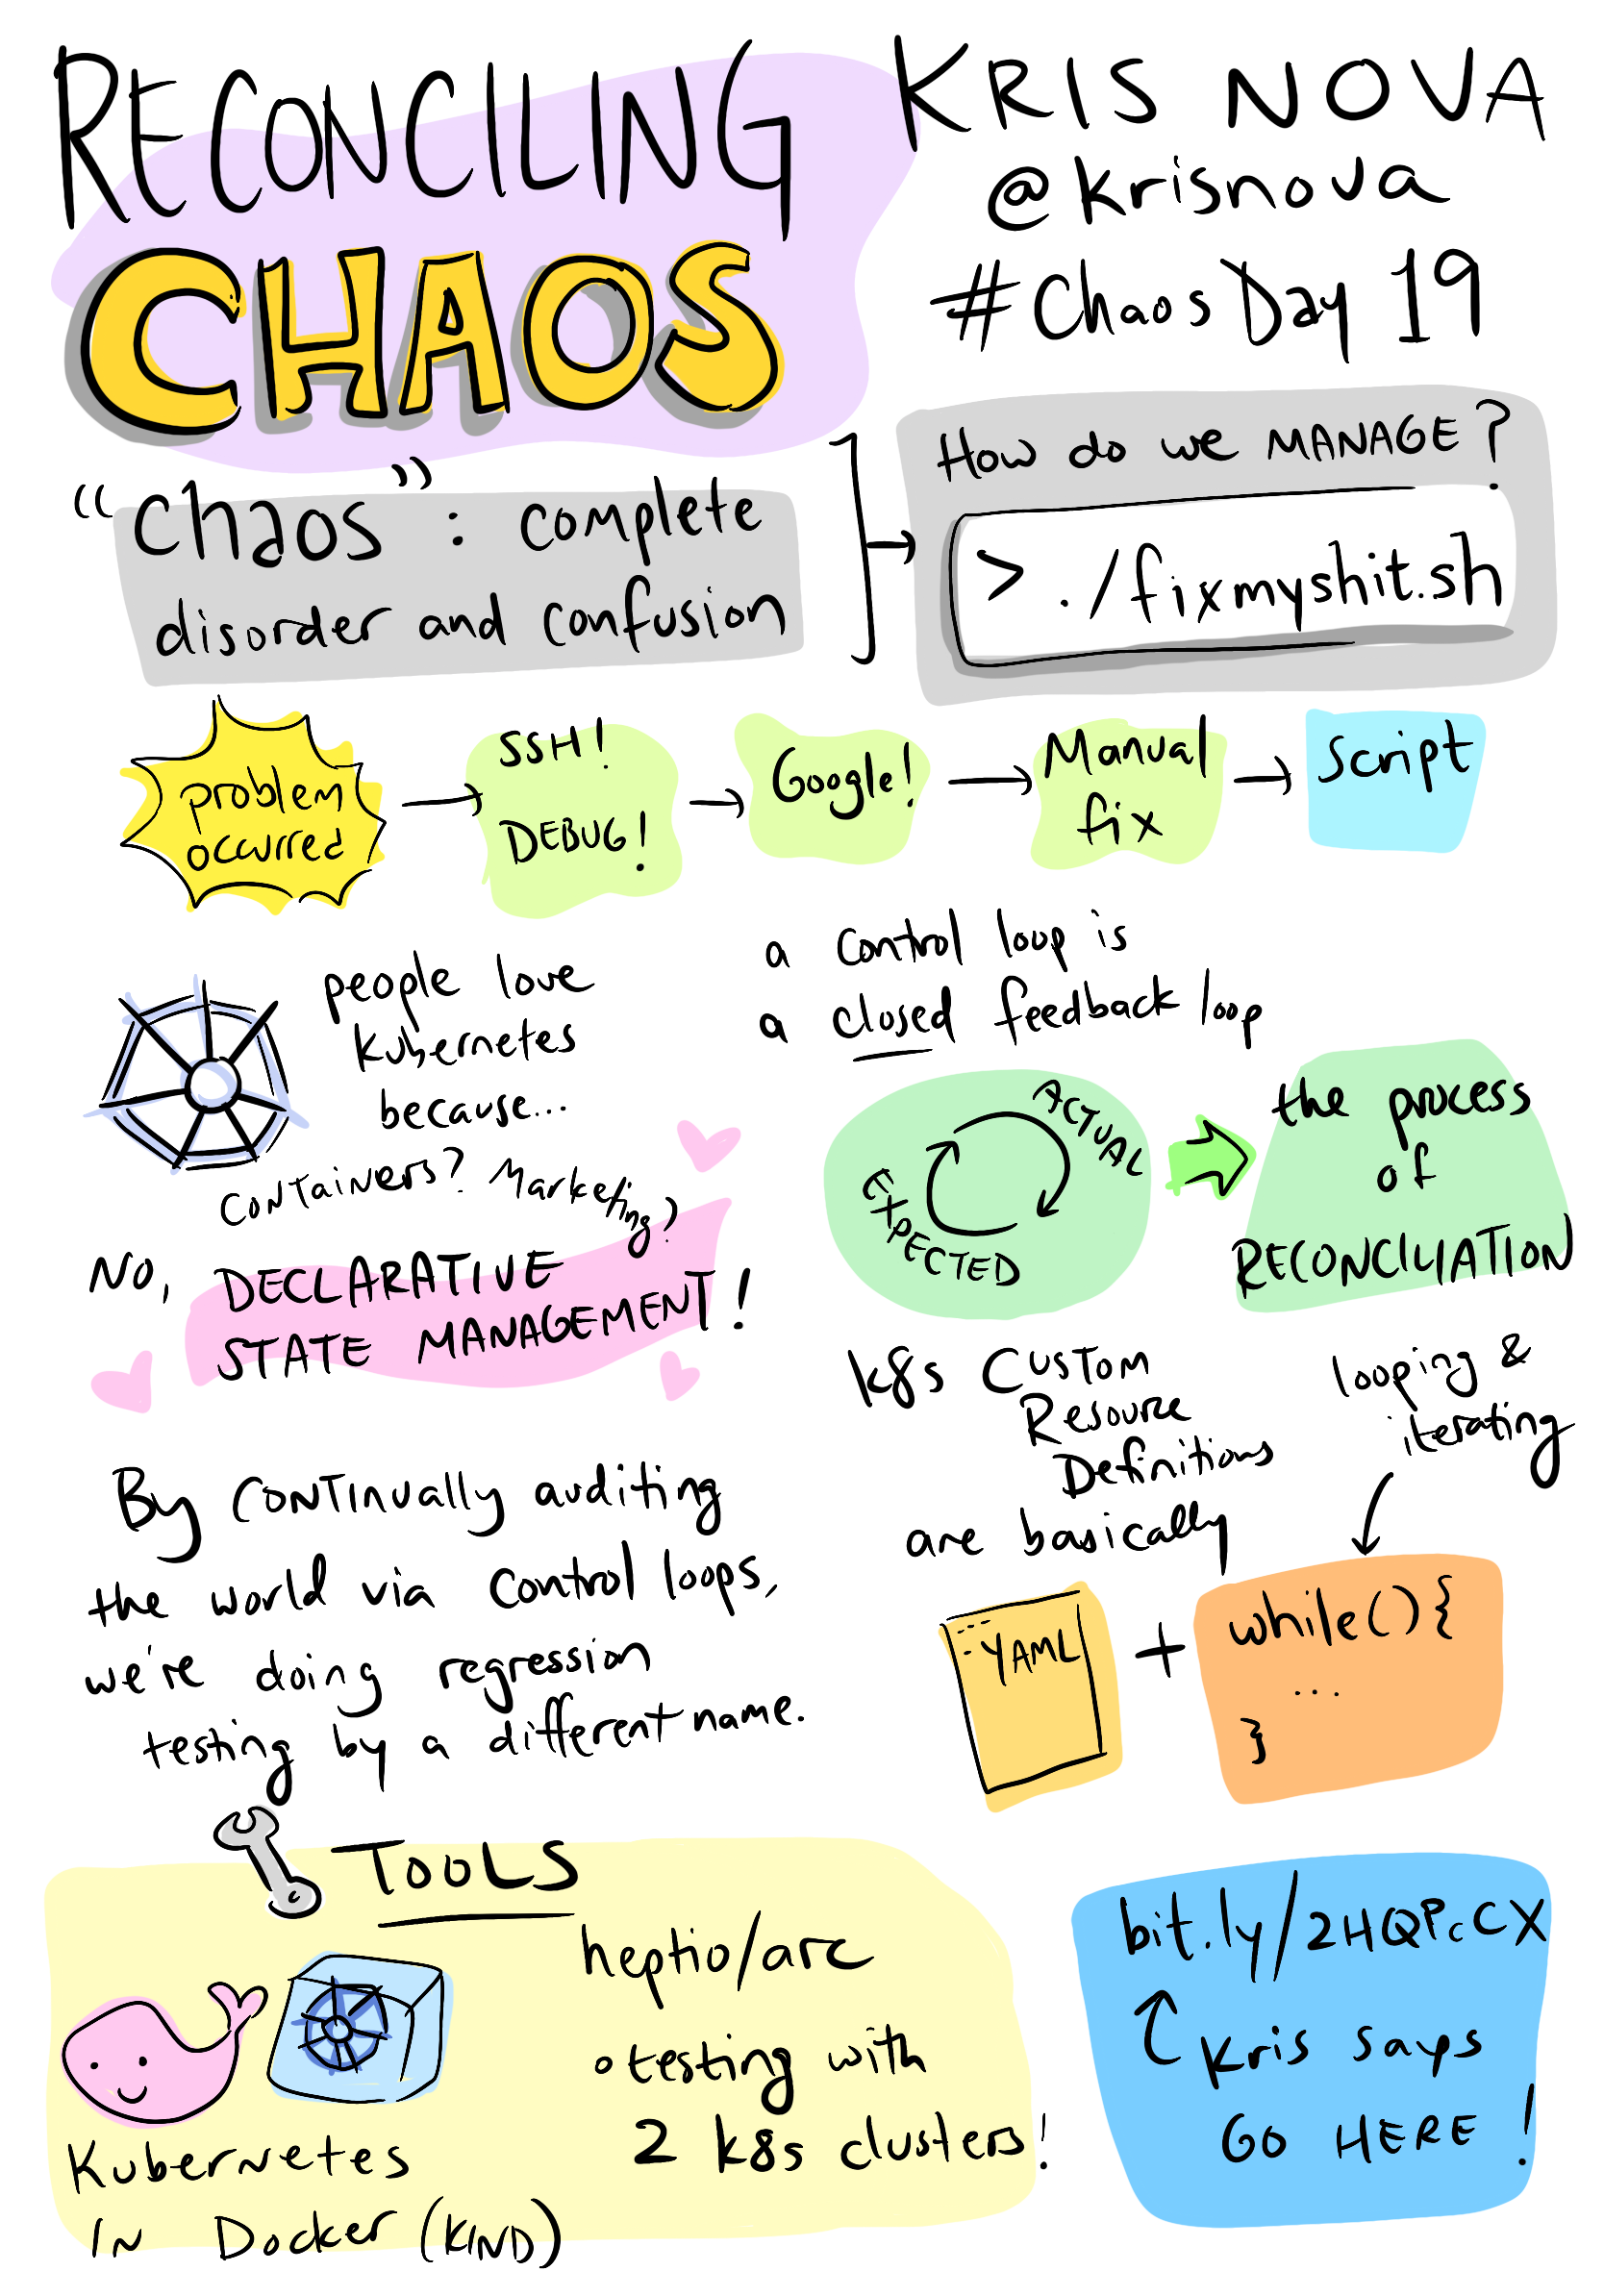 RECONCILING
CHAOS
KRIS NOVA
@krisnova
#Chaos Day 19
"chaos" : complete
disorder and confusion
How do we MANAGE?
> ./fixmyshit.sh
problem
occurred
SSH!
DEBUG!
Google!
Manual
fix
Script
people love
kubernetes
because...
containers? Marketing?
No, DECLARATIVE
STATE MANAGEMENT!
a control loop is
a closed feedback loop
ACTUAL
EXPECTED
the process
of
RECONCILIATION
k8s Custom
Resource
Definitions
are basically
looping &
iterating
--- 
- YAML
+
while(){
...
}
By continually auditing
the world via control loops,
we're doing regression
testing by a different name.
TOOLS
Kubernetes
IN Docker (KIND)
heptio/arc
• testing with
2 k8s clusters!
bit.ly/2HQPcCX
Kris says
GO HERE!